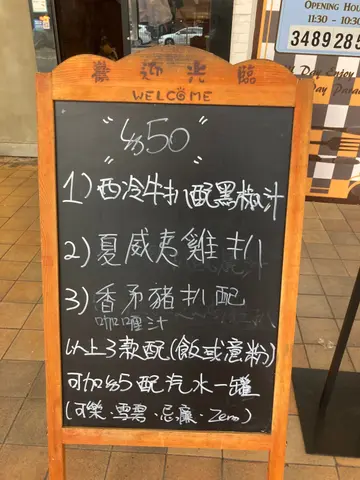 OPENING HOU
11:30 - 10:30
3489285
Day Enjoy
Day Para
歡迎光臨
WELCOME
"$50"
1)西冷牛扒配黑椒汁
2)夏威夷雞扒
3)香茅豬扒配
咖喱汁
以上3款配(飯或意粉)
可加$5配汽水一罐
(可樂·雪碧·忌廉·Zero)